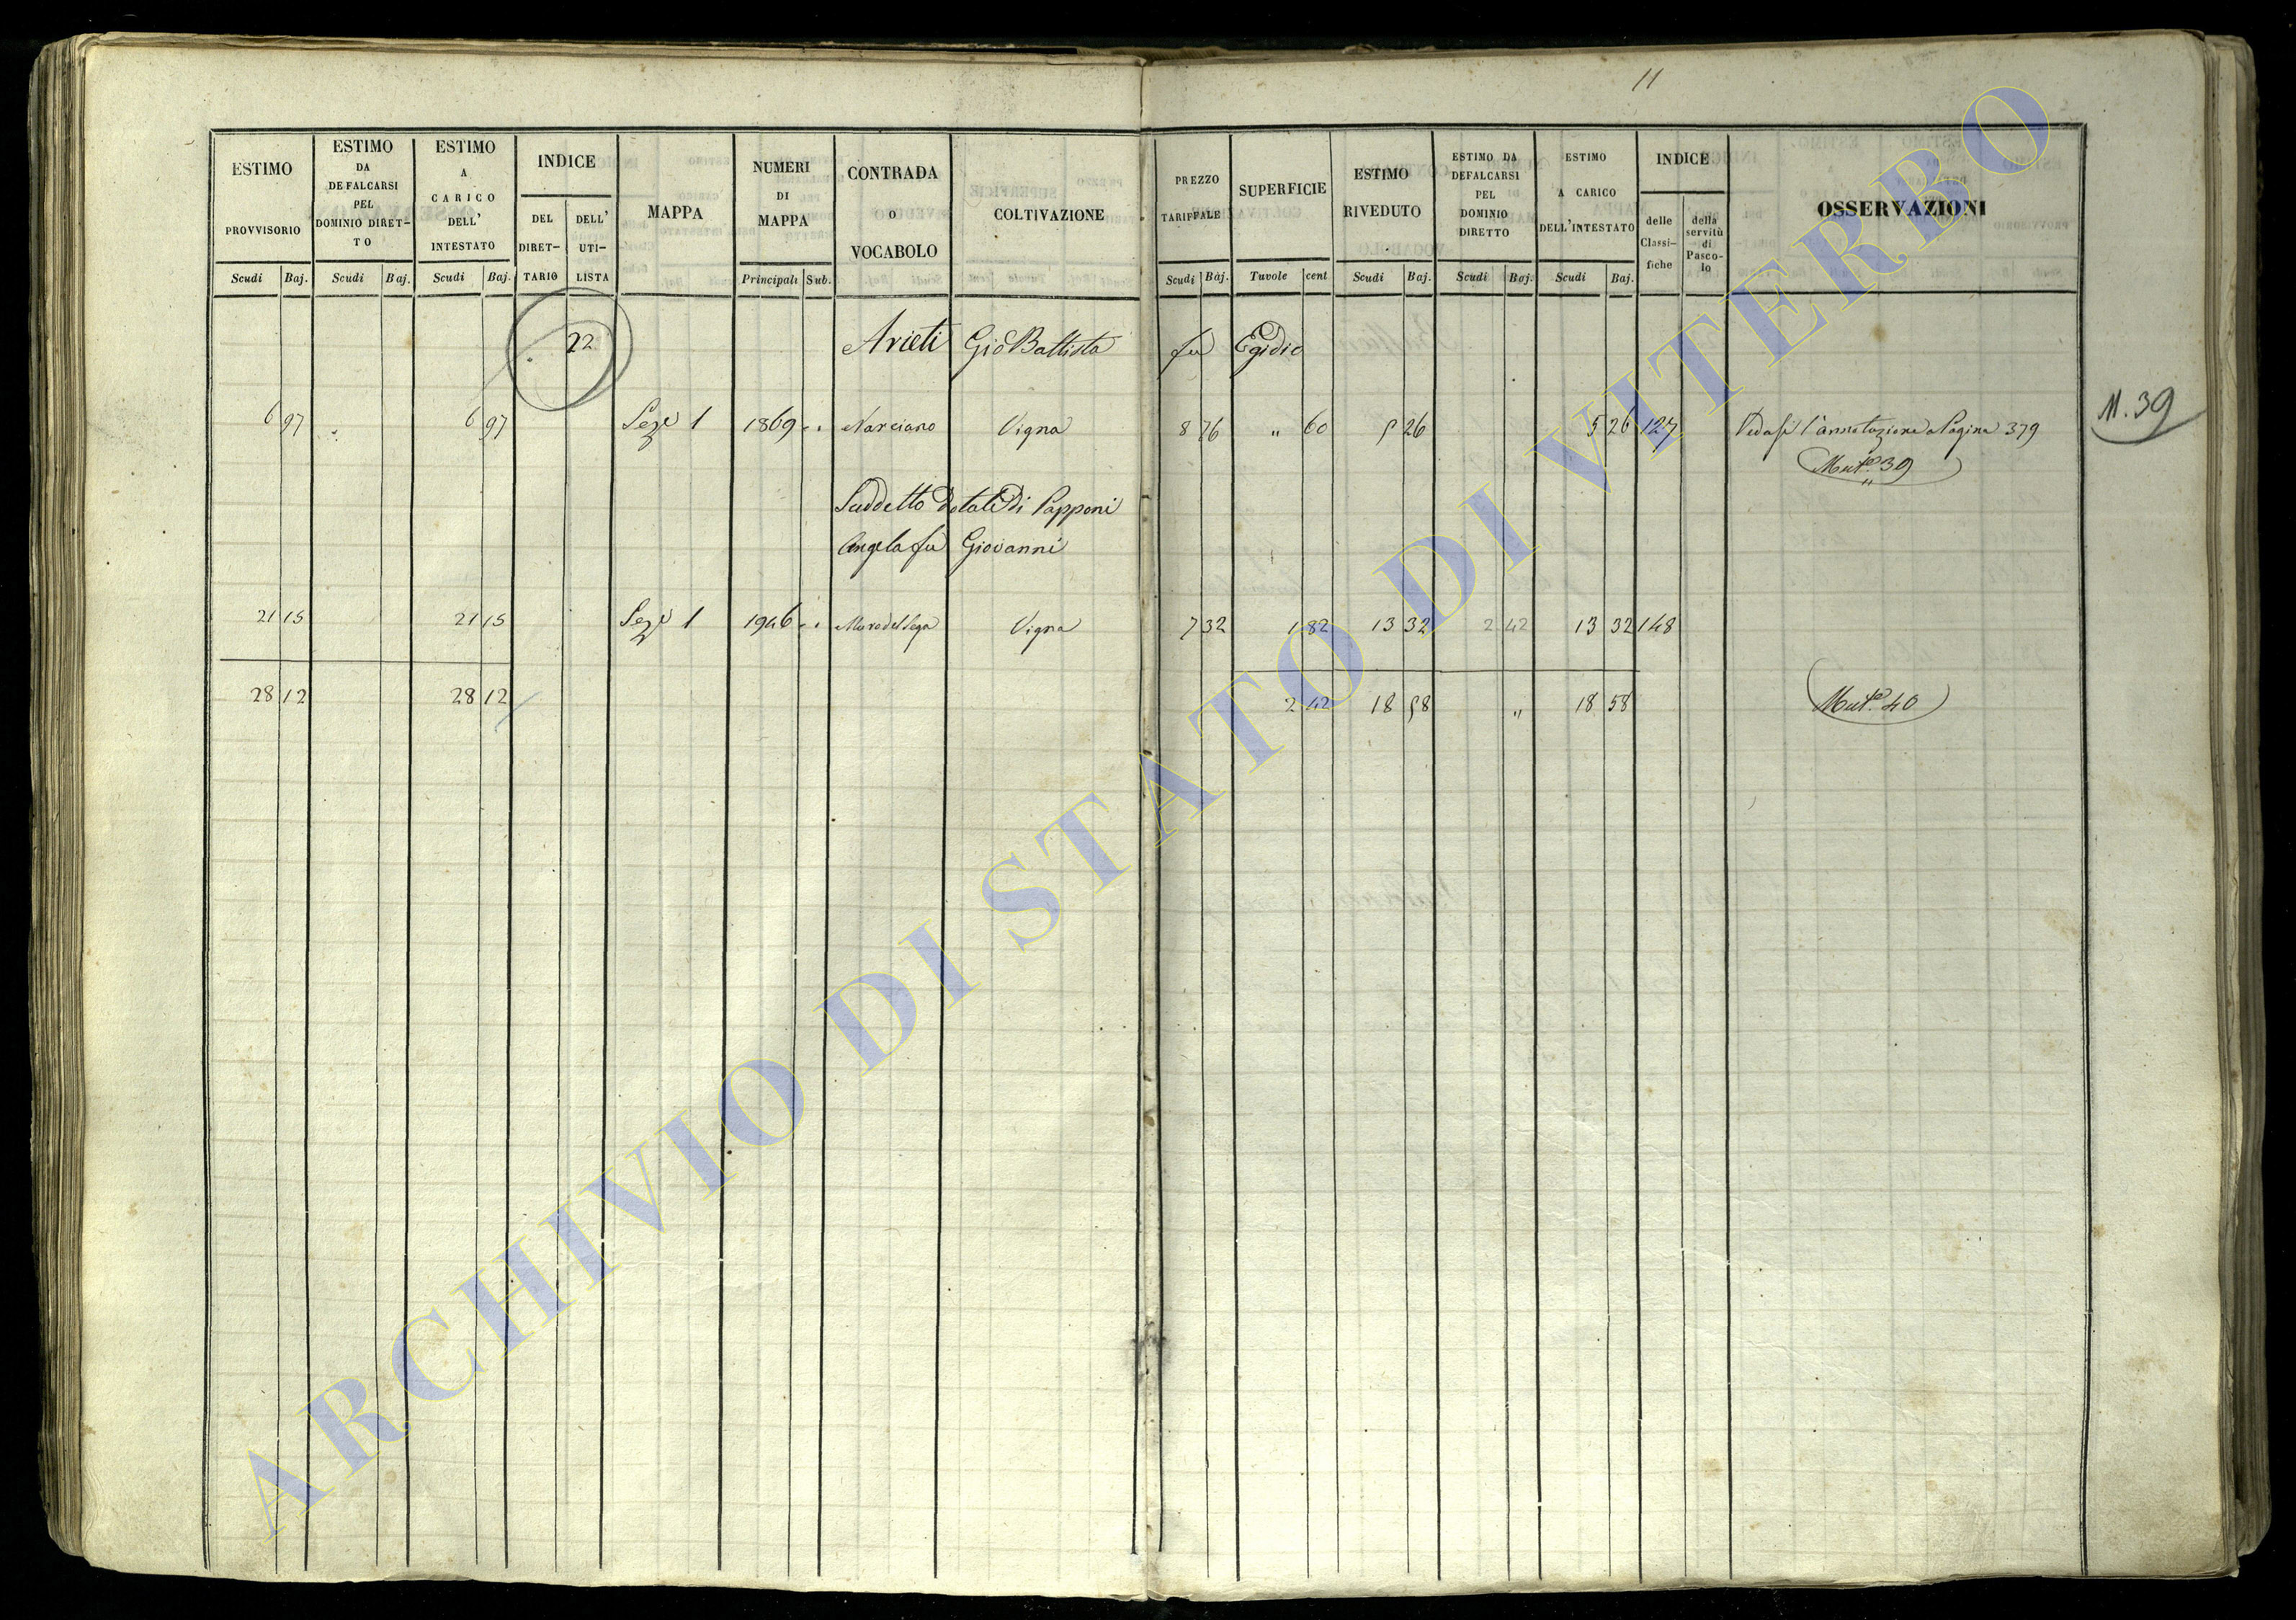 11
ESTIMO PROVVISORIO Scudi Baj.
ESTIMO DA DEFALCARSI PEL DOMINIO DIRETTO Scudi Baj.
ESTIMO A CARICO DELL' INTESTATO Scudi Baj.
INDICE DEL DIRETTARIO DELL' UTILISTA
MAPPA
NUMERI DI MAPPA Principali Sub.
CONTRADA O VOCABOLO
COLTIVAZIONE
PREZZO TARIFFALE Scudi Baj.
SUPERFICIE Tavole cent
ESTIMO RIVEDUTO Scudi Baj.
ESTIMO DA DEFALCARSI PEL DOMINIO DIRETTO Scudi Baj.
ESTIMO A CARICO DELL'INTESTATO Scudi Baj.
INDICE delle Classifiche della servitù di Pascolo
OSSERVAZIONI
22 Arieti Gio Battista fu Egidio
6 97 6 97 Seze 1 1869 Narciano Vigna 8 76 " 60 5 26 5 26 127 Vedasi l'annotazione a Pagina 379
M. 39
Mut.e 39
Suddetto dotale di Papponi
Angela fu Giovanni
21 15 21 15 Seze 1 1946 Vigna 7 32 1 82 13 32 2 42 13 32 148
28 12 28 12 2 42 18 58 " 18 58 Mut.e 40
ARCHIVIO DI STATO DI VITERBO